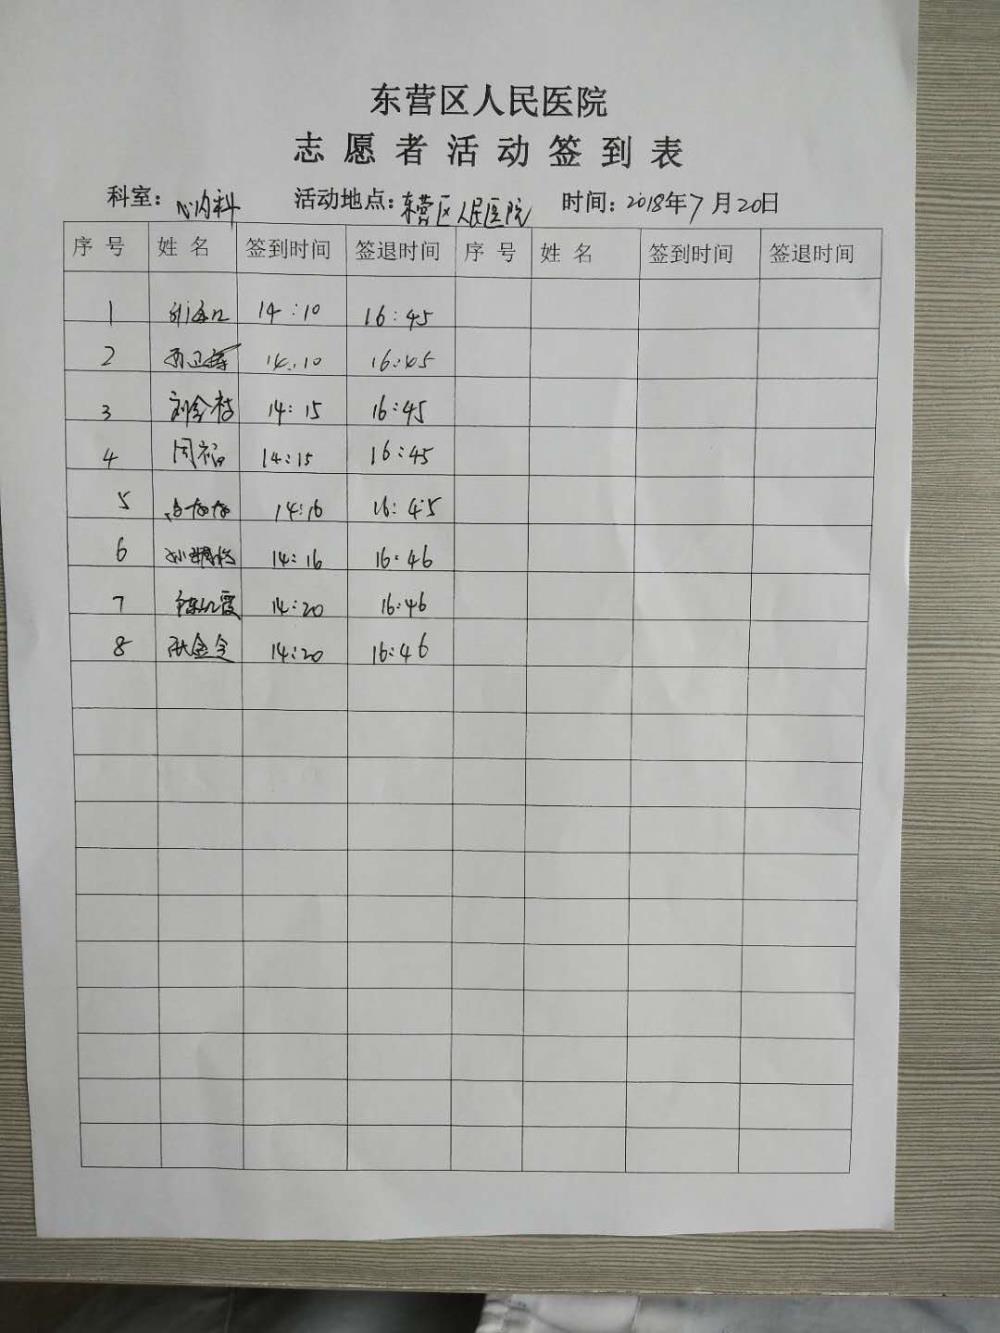 东营区人民医院
志愿者活动签到表
科室：心内科 活动地点：东营区人民医院 时间：2018年7月20日
序号 姓名 签到时间 签退时间 序号 姓名 签到时间 签退时间
1 14:10 16:45
2 14:10 16:45
3 14:15 16:45
4 周福 14:15 16:45
5 14:16 16:45
6 14:16 16:46
7 14:20 16:46
8 14:20 16:46